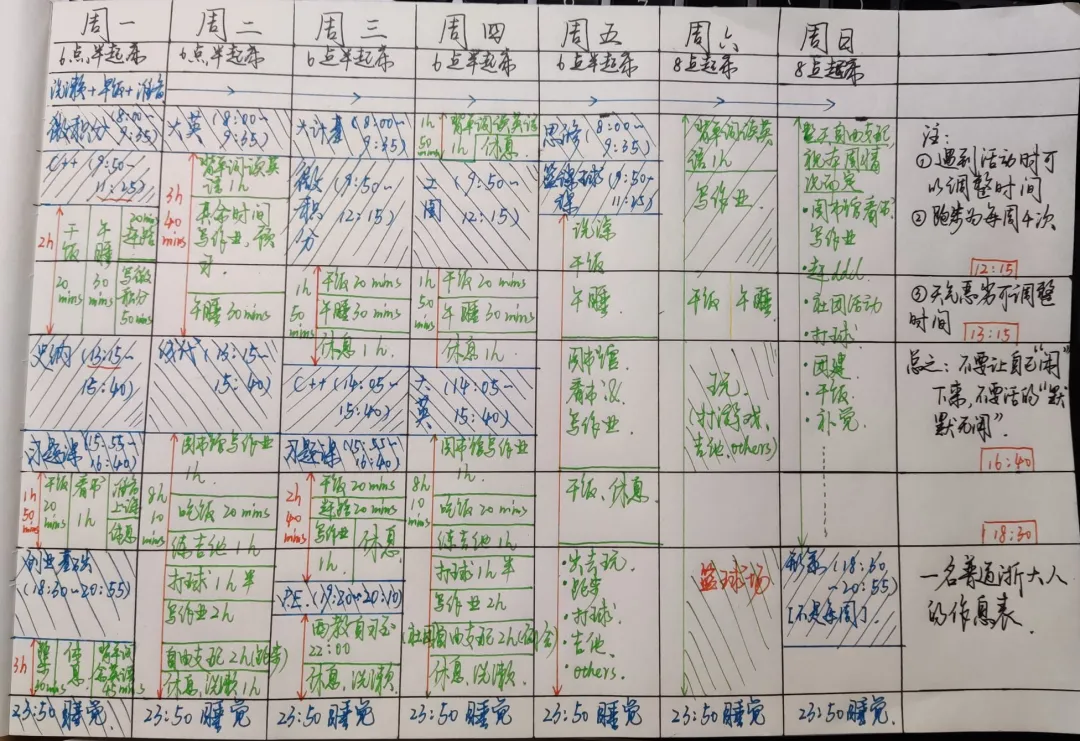 周一
6点半起床
洗漱+早饭+准备
微积分(8:00~
9:35)
C++(9:50~
11:25)
2h
干饭
20
mins
午睡
30
mins
20mins
写微
积分
50mins
史纲(13:15~
15:40)
习题课(15:55~
16:40)
1h
50
mins
干饭
20
mins
看书
1h
准备
上课
休息
创业基础
(18:30~20:55)
3h
跑步
休息
背单词
45mins
23:50 睡觉
周二
6点半起床
大英(8:00~
9:35)
3h
40
mins
背单词读英
语1h
其余时间
写作业,预
习.
午睡30mins
线代(13:15~
15:40)
8h
10
mins
图书馆写作业
1h.
吃饭20mins
练吉他1h
打球1h半
写作业2h
自由支配2h(跑步)
休息,洗漱1h
23:50 睡觉
周三
6点半起床
大计基(8:00~
9:35)
微积分(9:50~
12:15)
1h
50
mins
干饭20mins
午睡30mins
休息1h.
C++(14:05~
15:40)
习题课(15:55~
16:40)
2h
40
mins
干饭20mins
20mins
写作业
1h.
休息
P.E.(19:30~20:10)
西教自习至
22:00
休息,洗漱.
23:50 睡觉
周四
6点半起床
1h
50
mins
背单词读英语
1h
休息.
工图(9:50~
12:15)
1h
50
mins
干饭20mins
午睡30mins
休息1h.
大英(14:05~
15:40)
8h
10
mins
图书馆写作业
1h.
吃饭20mins
练吉他1h
打球1h半
写作业2h
自由支配2h
休息,洗漱1h
23:50 睡觉
周五
6点半起床
思修(8:00~
9:35)
篮球课(9:50~
11:25)
洗澡
干饭
午睡
图书馆
看书&
写作业
干饭、休息
出去玩.
·跑步
·打球.
·吉他.
·others.
23:50 睡觉
周六
8点起床
背单词读英
语1h
写作业
干饭 午睡
玩.
(打游戏、
吉他,others)
篮球场
23:50 睡觉
周日
8点起床
整天自由支配,
视本周情
况而定
·图书馆看书,
写作业
·赶ddl
·社团活动
·打球.
·团建.
·干饭.
·补觉.
形策(18:30
~20:55)
[不是每周]
23:50 睡觉.
注:
①遇到活动时可
以调整时间
②跑步为每周4次
12:15
③天气恶劣可调整
时间
13:15
总之:不要让自己“闲”
下来,不要活的“默
默无闻”.
16:40
18:30
一名普通浙大人
的作息表.